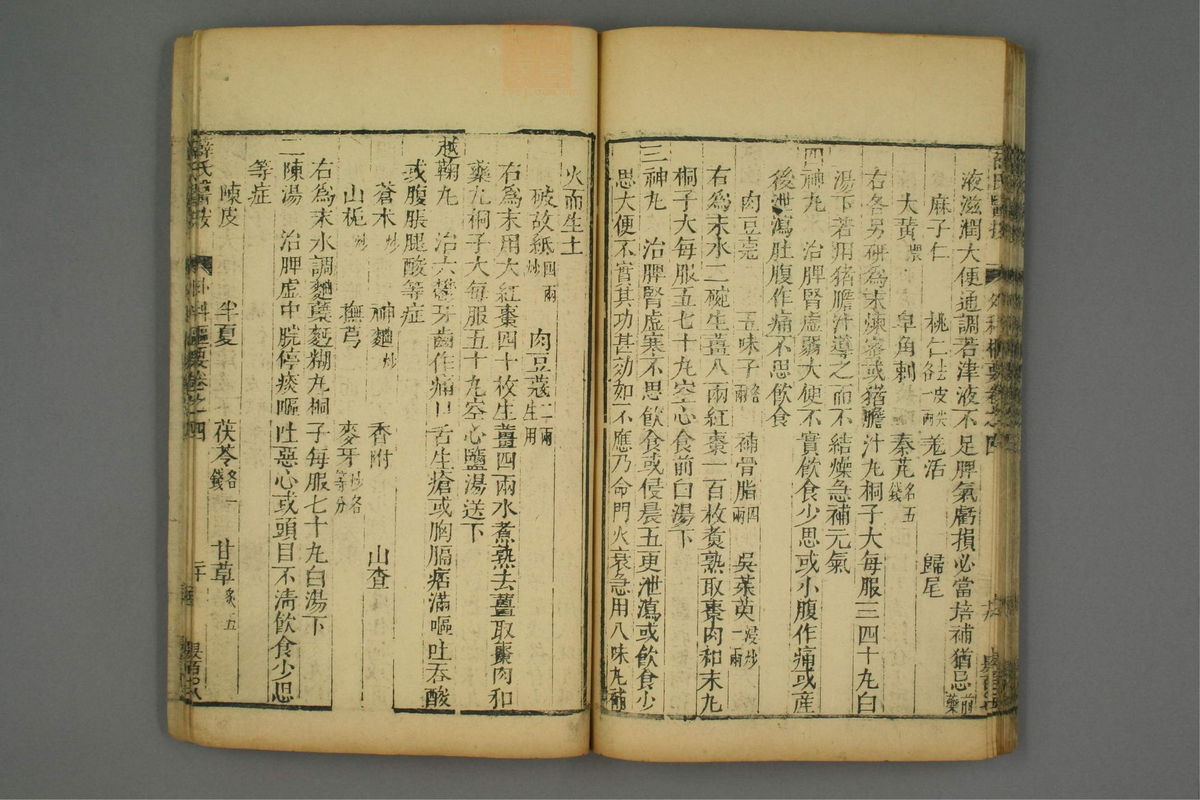 液滋潤大便通調若津液不足脾氣虧損必當培補猶忌前藥
麻子仁 桃仁去皮尖各一兩 羌活 歸尾
大黃煨 皂角刺 秦艽各五錢
右各另研爲末煉蜜或猪膽汁丸桐子大每服三四十丸白
湯下若用猪膽汁導之而不結燥急補元氣
四神丸 治脾腎虛弱大便不實飲食少思或小腹作痛或產
後泄瀉肚腹作痛不思飲食
肉豆蔻 五味子各二兩 補骨脂四兩 吳茱萸浸炒一兩
右爲末水二碗生薑八兩紅棗一百枚煑熟取棗肉和末丸
桐子大每服五七十丸空心食前白湯下
三神丸 治脾腎虛寒不思飲食或侵晨五更泄瀉或飲食少
思大便不實其功甚効如不應乃命門火衰急用八味丸補
火而生土
破故紙四兩炒 肉豆蔻二兩生用
右爲末用大紅棗四十枚生薑四兩水煮熟去薑取棗肉和
藥丸桐子大每服五十丸空心鹽湯送下
越鞠丸 治六鬱牙齒作痛口舌生瘡或胸膈痞滿嘔吐吞酸
或腹脹腿酸等症
蒼朮炒 神麯炒 香附 山查
山梔炒 撫芎 麥牙炒各等分
右爲末水調麯藥麪糊丸桐子每服七十丸白湯下
二陳湯 治脾虛中脘停痰嘔吐惡心或頭目不淸飲食少思
等症
陳皮 半夏 茯苓各一錢 甘草炙五
薛氏醫按 外科樞要卷之四